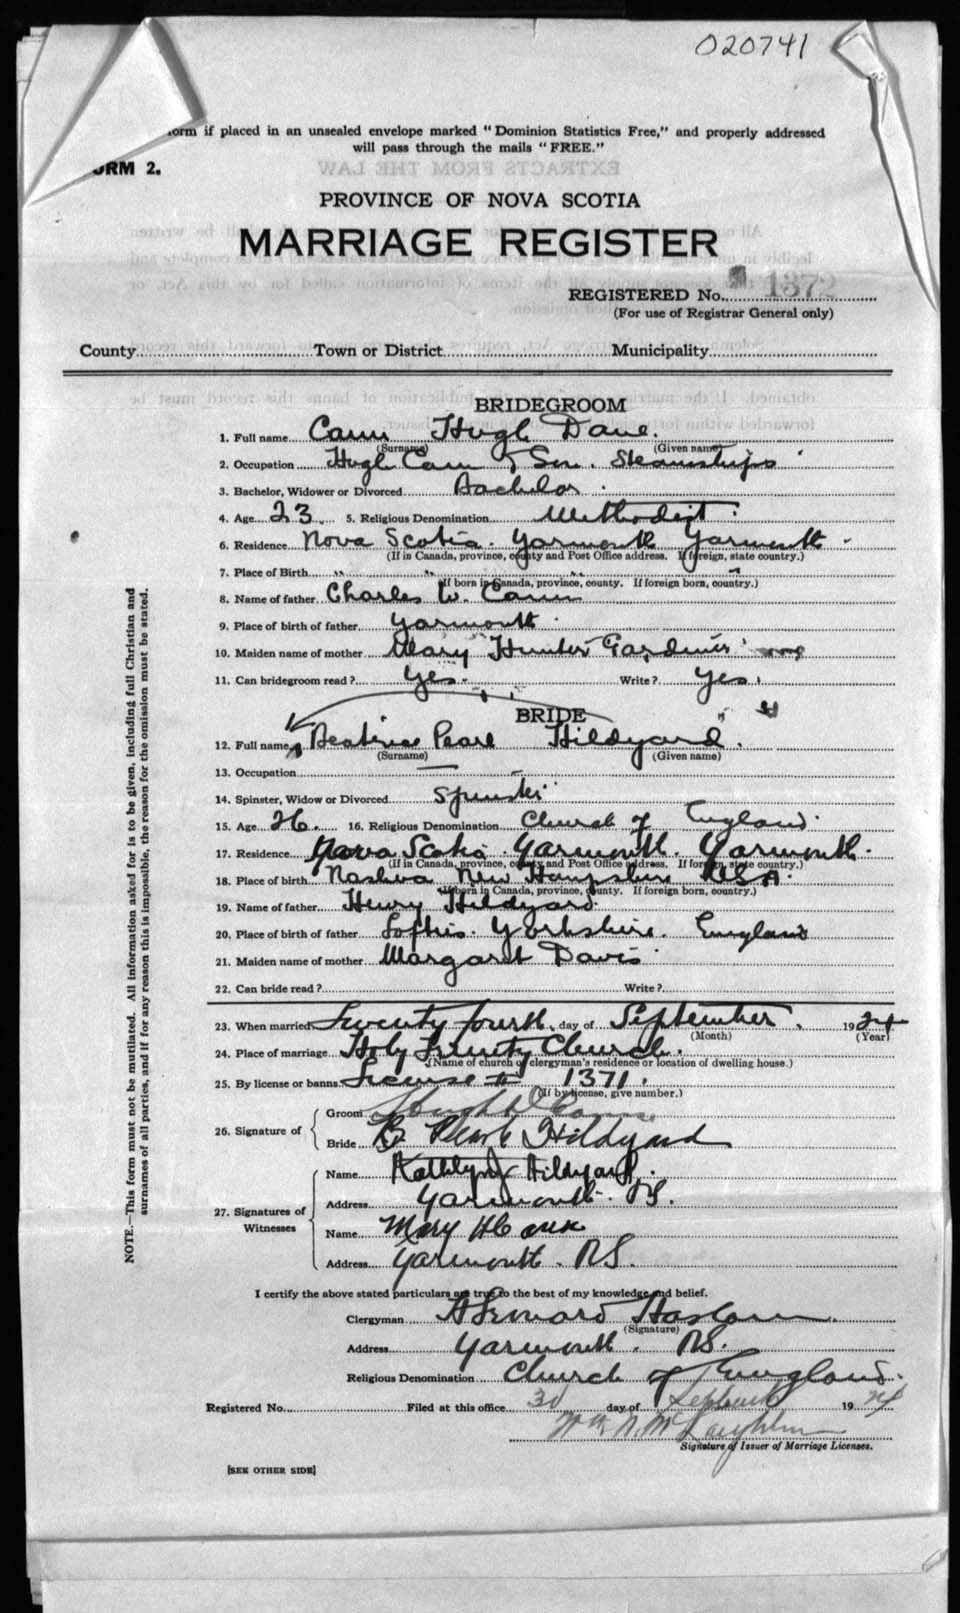 020741
orm if placed in an unsealed envelope marked "Dominion Statistics Free," and properly addressed
will pass through the mails "FREE."
ORM 2.
PROVINCE OF NOVA SCOTIA
MARRIAGE REGISTER
REGISTERED No. 1372
(For use of Registrar General only)
County Town or District Municipality
BRIDEGROOM
1. Full name Cann Hugh Dane.
(Surname) (Given name)
2. Occupation Hugh Cann & Son. Steamships
3. Bachelor, Widower or Divorced Bachelor.
4. Age 23. 5. Religious Denomination Methodist.
6. Residence Nova Scotia. Yarmouth Yarmouth.
(If in Canada, province, county and Post Office address. If foreign, state country.)
7. Place of Birth " " " "
(If born in Canada, province, county. If foreign born, country.)
8. Name of father Charles W. Cann
9. Place of birth of father Yarmouth.
10. Maiden name of mother Mary Hunter Gardner
11. Can bridegroom read? Yes. Write? Yes.
BRIDE
12. Full name Beatrice Pearl Hildyard.
(Surname) (Given name)
13. Occupation —
14. Spinster, Widow or Divorced Spinster
15. Age 26. 16. Religious Denomination Church of England.
17. Residence Nova Scotia. Yarmouth. Yarmouth.
(If in Canada, province, county and Post Office address. If foreign, state country.)
18. Place of birth Nashua New Hampshire USA.
(If born in Canada, province, county. If foreign born, country.)
19. Name of father Henry Hildyard.
20. Place of birth of father Loftus. Yorkshire. England
21. Maiden name of mother Margaret Davis
22. Can bride read? Write?
23. When married Twenty fourth. day of September. 1924
(Month) (Year)
24. Place of marriage Holy Trinity Church.
(Name of church or clergyman's residence or location of dwelling house.)
25. By license or banns License # 1371.
(If by license, give number.)
26. Signature of
Groom Hugh D Cann
Bride B Pearl Hildyard
27. Signatures of Witnesses
Name Kathlyn Hildyard.
Address Yarmouth. NS.
Name Mary H Cann
Address Yarmouth. NS.
I certify the above stated particulars are true to the best of my knowledge and belief.
Clergyman A Leonard Haslam.
(Signature)
Address Yarmouth. NS.
Religious Denomination Church of England.
Registered No. Filed at this office 30 day of September 1924
Wm. N. McLaughlin
Signature of Issuer of Marriage Licenses.
[SEE OTHER SIDE]
NOTE.—This form must not be mutilated. All information asked for is to be given, including full Christian and
surnames of all parties, and if for any reason this is impossible, the reason for the omission must be stated.